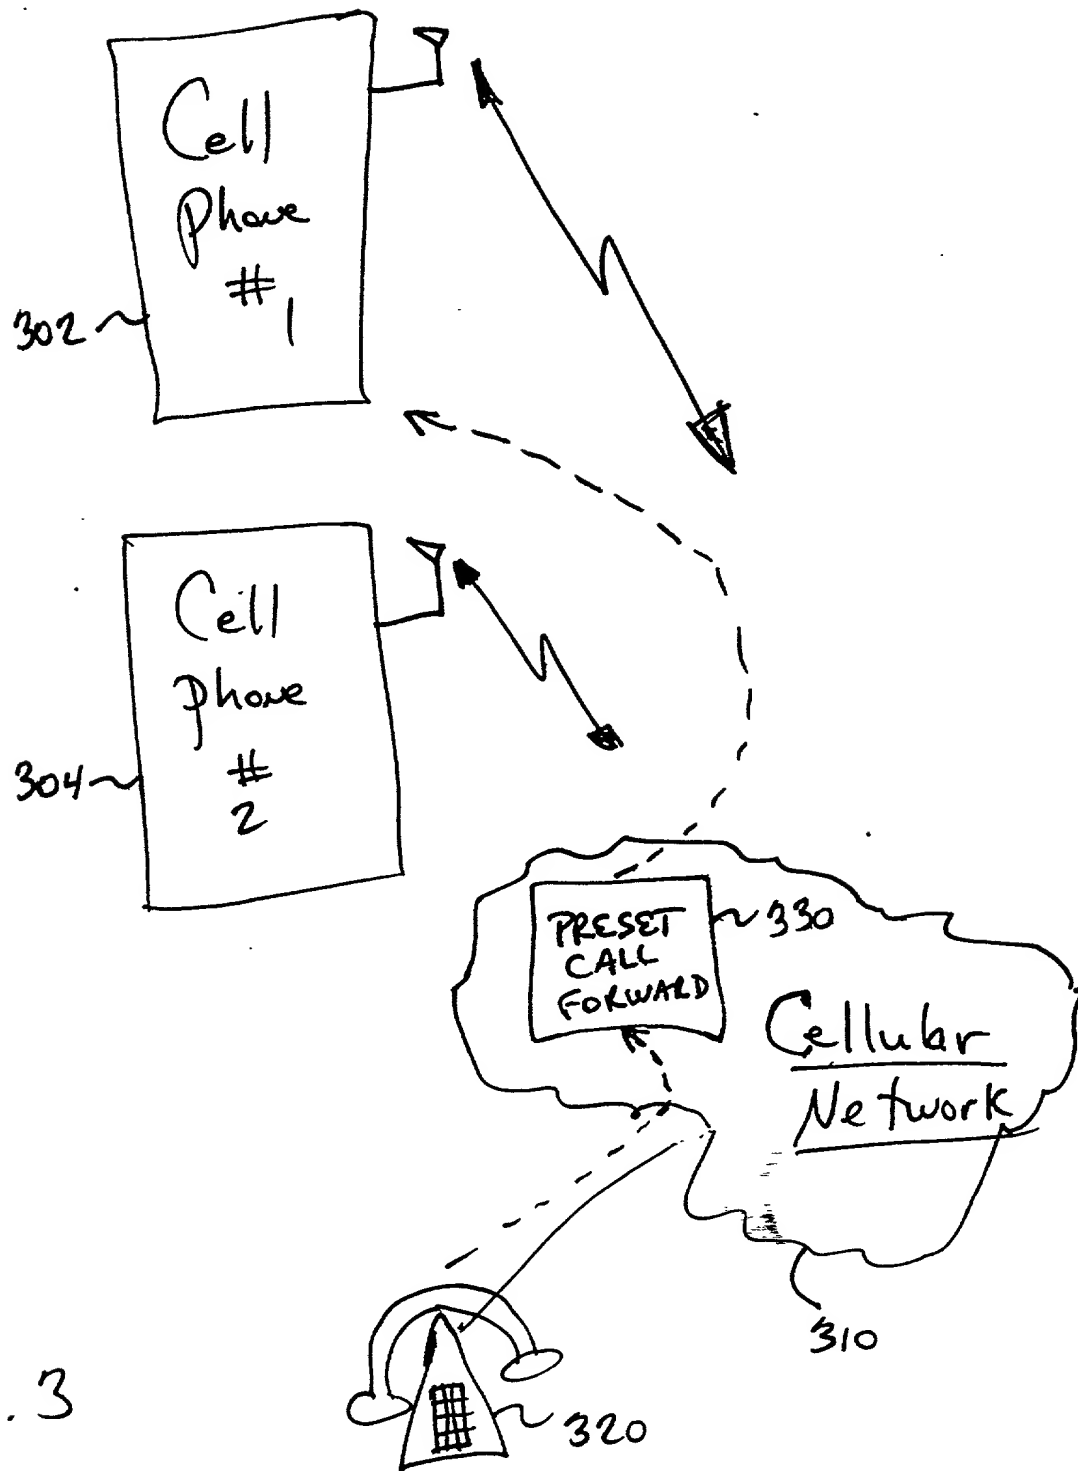 Cell
Phone
#
1
302
Cell
Phone
#
2
304
PRESET
CALL
FORWARD
330
Cellular
Network
310
320
. 3